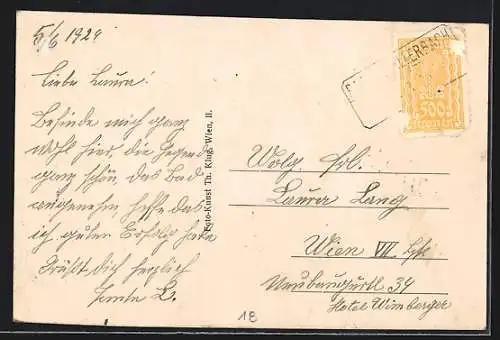 5/6 1924
Liebe Laura!
Befinde mich ganz
wohl hier, die Gegend
ganz schön, das Bad
angenehm hoffe das
ich guten Erfolg habe
Grüßt Dich herzlich
Tante L.
Foto-Kunst Th. Kling, Wien, II.
500
Kronen
Wolg. Frl.
Laura Lang
Wien VII. Bz.
Neubaugürtl 34
Hotel Wimberger
18